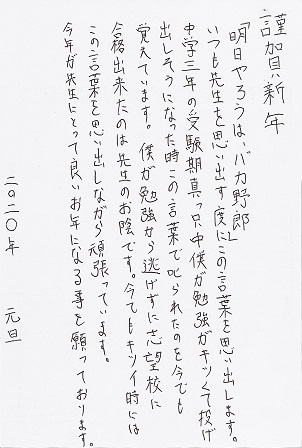 謹賀新年
「明日やろうは、バカ野郎」
いつも先生を思い出す度にこの言葉を思い出します。
中学三年の受験期真っ只中僕が勉強がキツくて投げ
出しそうになった時この言葉で叱られたのを今でも
覚えています。僕が勉強から逃げずに志望校に
合格出来たのは先生のお陰です。今でもキツイ時には
この言葉を思い出しながら頑張っています。
今年が先生にとって良いお年になる事を願っております。
二〇二〇年 元旦